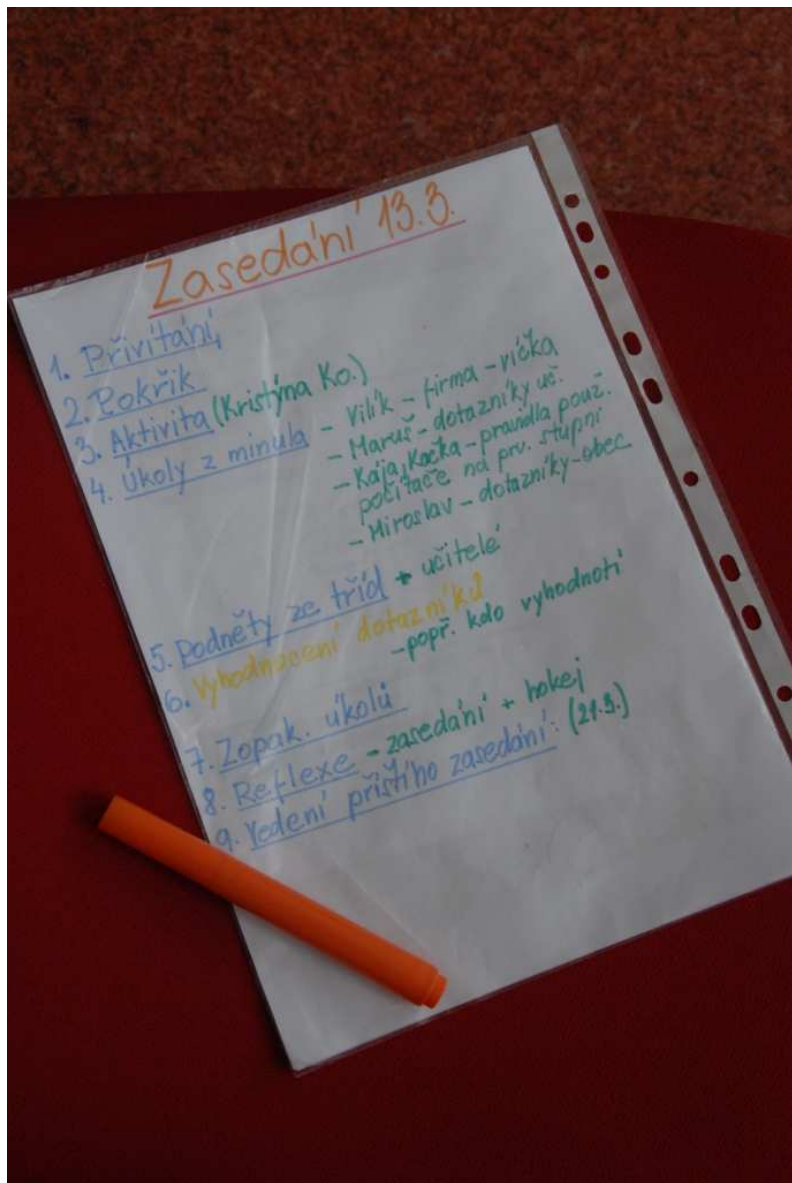 Zasedání 13.3.
1. Přivítání
2. Pokřik
3. Aktivita (Kristýna Ko.)
4. Úkoly z minula - Vilík - firma - víčka
- Maruš - dotazníky uč.
- Kája, Kačka - pravidla použ.
počítače na prv. stupni
- Miroslav - dotazníky - obec
5. Podněty ze tříd + učitelé
6. Vyhodnocení dotazníků
- popř. kdo vyhodnotí
7. Zopak. úkolů
8. Reflexe - zasedání + hokej
9. Vedení příštího zasedání: (21.3.)